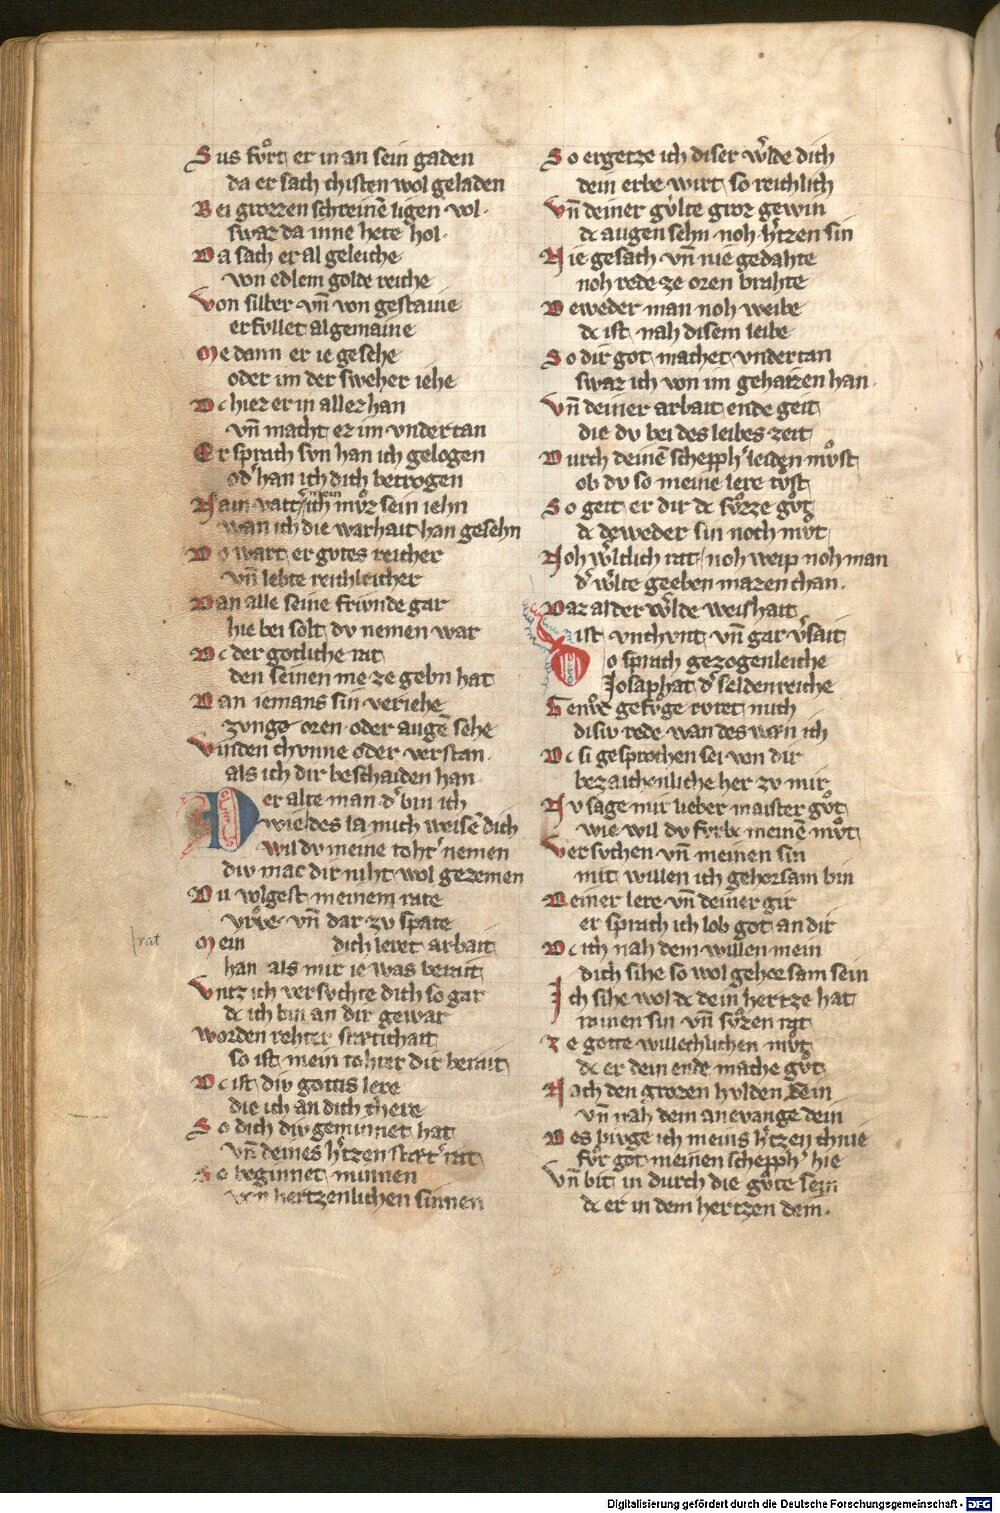 Sus fvͦrt er in an sein gaden
da er sach chisten wol geladen
Bei grozzen schreinē ligen vol·
swaz da inne hete hol·
Da sach er al geleiche
von edlem golde reiche
Von silber vn̄ von gestaine
erfvllet algemaine
Me dann er ie gesehe
oder im der sweher iehe
Dc hiez er in allez han
vn̄ macht ez im vndertan
Er sprach svn han ich gelogen
od' han ich dich betrogen
Nain vatt'r ich mvͦz sein iehn
mein
wan ich die warhait han gesehn
Do wart er gvtes reicher
vn̄ lebte reichleicher
Dan alle seine frivnde gar
hie bei solt dv nemen war
Dc der gotliche rat
den seinen me ze gebn hat
Dan iemans sin veriehe
zvnge oren oder augē sehe
Vinden chvnne oder verstan
als ich dir beschaiden han
Der alte man d' bin ich
wie des la mich weisē dich
wil dv meine toht' nemen
div mac dir niht wol gezemen
Dv volgest meinem rate
vrͦve vn̄ dar zv spate
rat
Mein dich leret arbait
han als mir ie was berait
Vntz ich versvchte dich so gar
dc ich bin an dir gewar
Worden rehter stetichait
so ist mein tohter dir berait
Dc ist div gottis lere
die ich an dich chere
So dich div geminnet hat
vn̄ deines h'tzen stet' rat
So beginnet minnen
von hertzenlichen sinnen
So ergetze ich diser w'lde dich
dein erbe wirt so reichlich
Vn̄ deiner gvlte groz gewin
dc augen sehn noh h'tzen sin
Nie gesach vn̄ nie gedahte
noh rede ze oren brahte
Deweder man noh weibe
dc ist nah disem leibe
So dir got machet vndertan
swaz ich von im gehaizen han
Vn̄ deiner arbait ende geit
die dv bei des leibes zeit
Durch deinē schepph' leiden mvͦst
ob dv so meine lere tvͦst
So geit er dir dc svͦzze gvͦt
dc deweder sin noch mvͦt
Noh w'ltlich rat noh weip noh man
d' w'lte geeben mazen chan·
Daz alder w'lde weishait
ist vnchvnt vn̄ gar v'sait
Do sprach gezogenleiche
Josaphat d' seldenreiche
Genvͦc gefvͦge rvret mich
disiv rede wan des wæn ich
Dc si gesprochen sei von dir
bezaichenliche her zv mir
Nv sage mir lieber maister gvͦt
wie wil dv fvrbc meinē mvͦt
Versvchen vn̄ meinen sin
mit willen ich gehorsam bin
Deiner lere vn̄ deiner gir
er sprach ich lob got an dir
Dc ich nah dem willen mein
dich sihe so wol gehorsam sein
Ich sihe wol dc dein hertze hat
rainen sin vn̄ svͦzen rat
Ze gotte willechlichen mvͦt
dc er dein ende mache gvͦt
Nach den grozen hvlden sein
vn̄ nah dem anevange dein
Des bivge ich meins h'tzen chnie
fvͦr got meinen schepph' hie
Vn̄ bit in durch die gvͦte sein
dc er in dem hertzen dein·
Digitalisierung gefördert durch die Deutsche Forschungsgemeinschaft - DFG